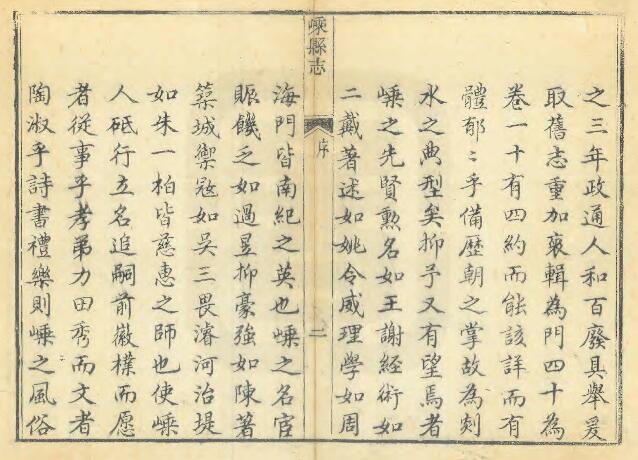 之三年政通人和百廢具舉爰
取舊志重加裒輯為門四十為
卷一十有四約而能該詳而有
體郁〻乎備歷朝之掌故為剡
水之典型矣抑予又有望焉者
嵊之先賢勲名如王謝經術如
二戴著述如姚令威理學如周
嵊縣志
序
二
海門皆南紀之英也嵊之名宦
賑饑乏如過昱抑豪強如陳著
築城禦寇如吳三畏濬河治堤
如朱一柏皆慈惠之師也使嵊
人砥行立名追嗣前徽樸而愿
者從事乎孝弟力田秀而文者
陶淑乎詩書禮樂則嵊之風俗